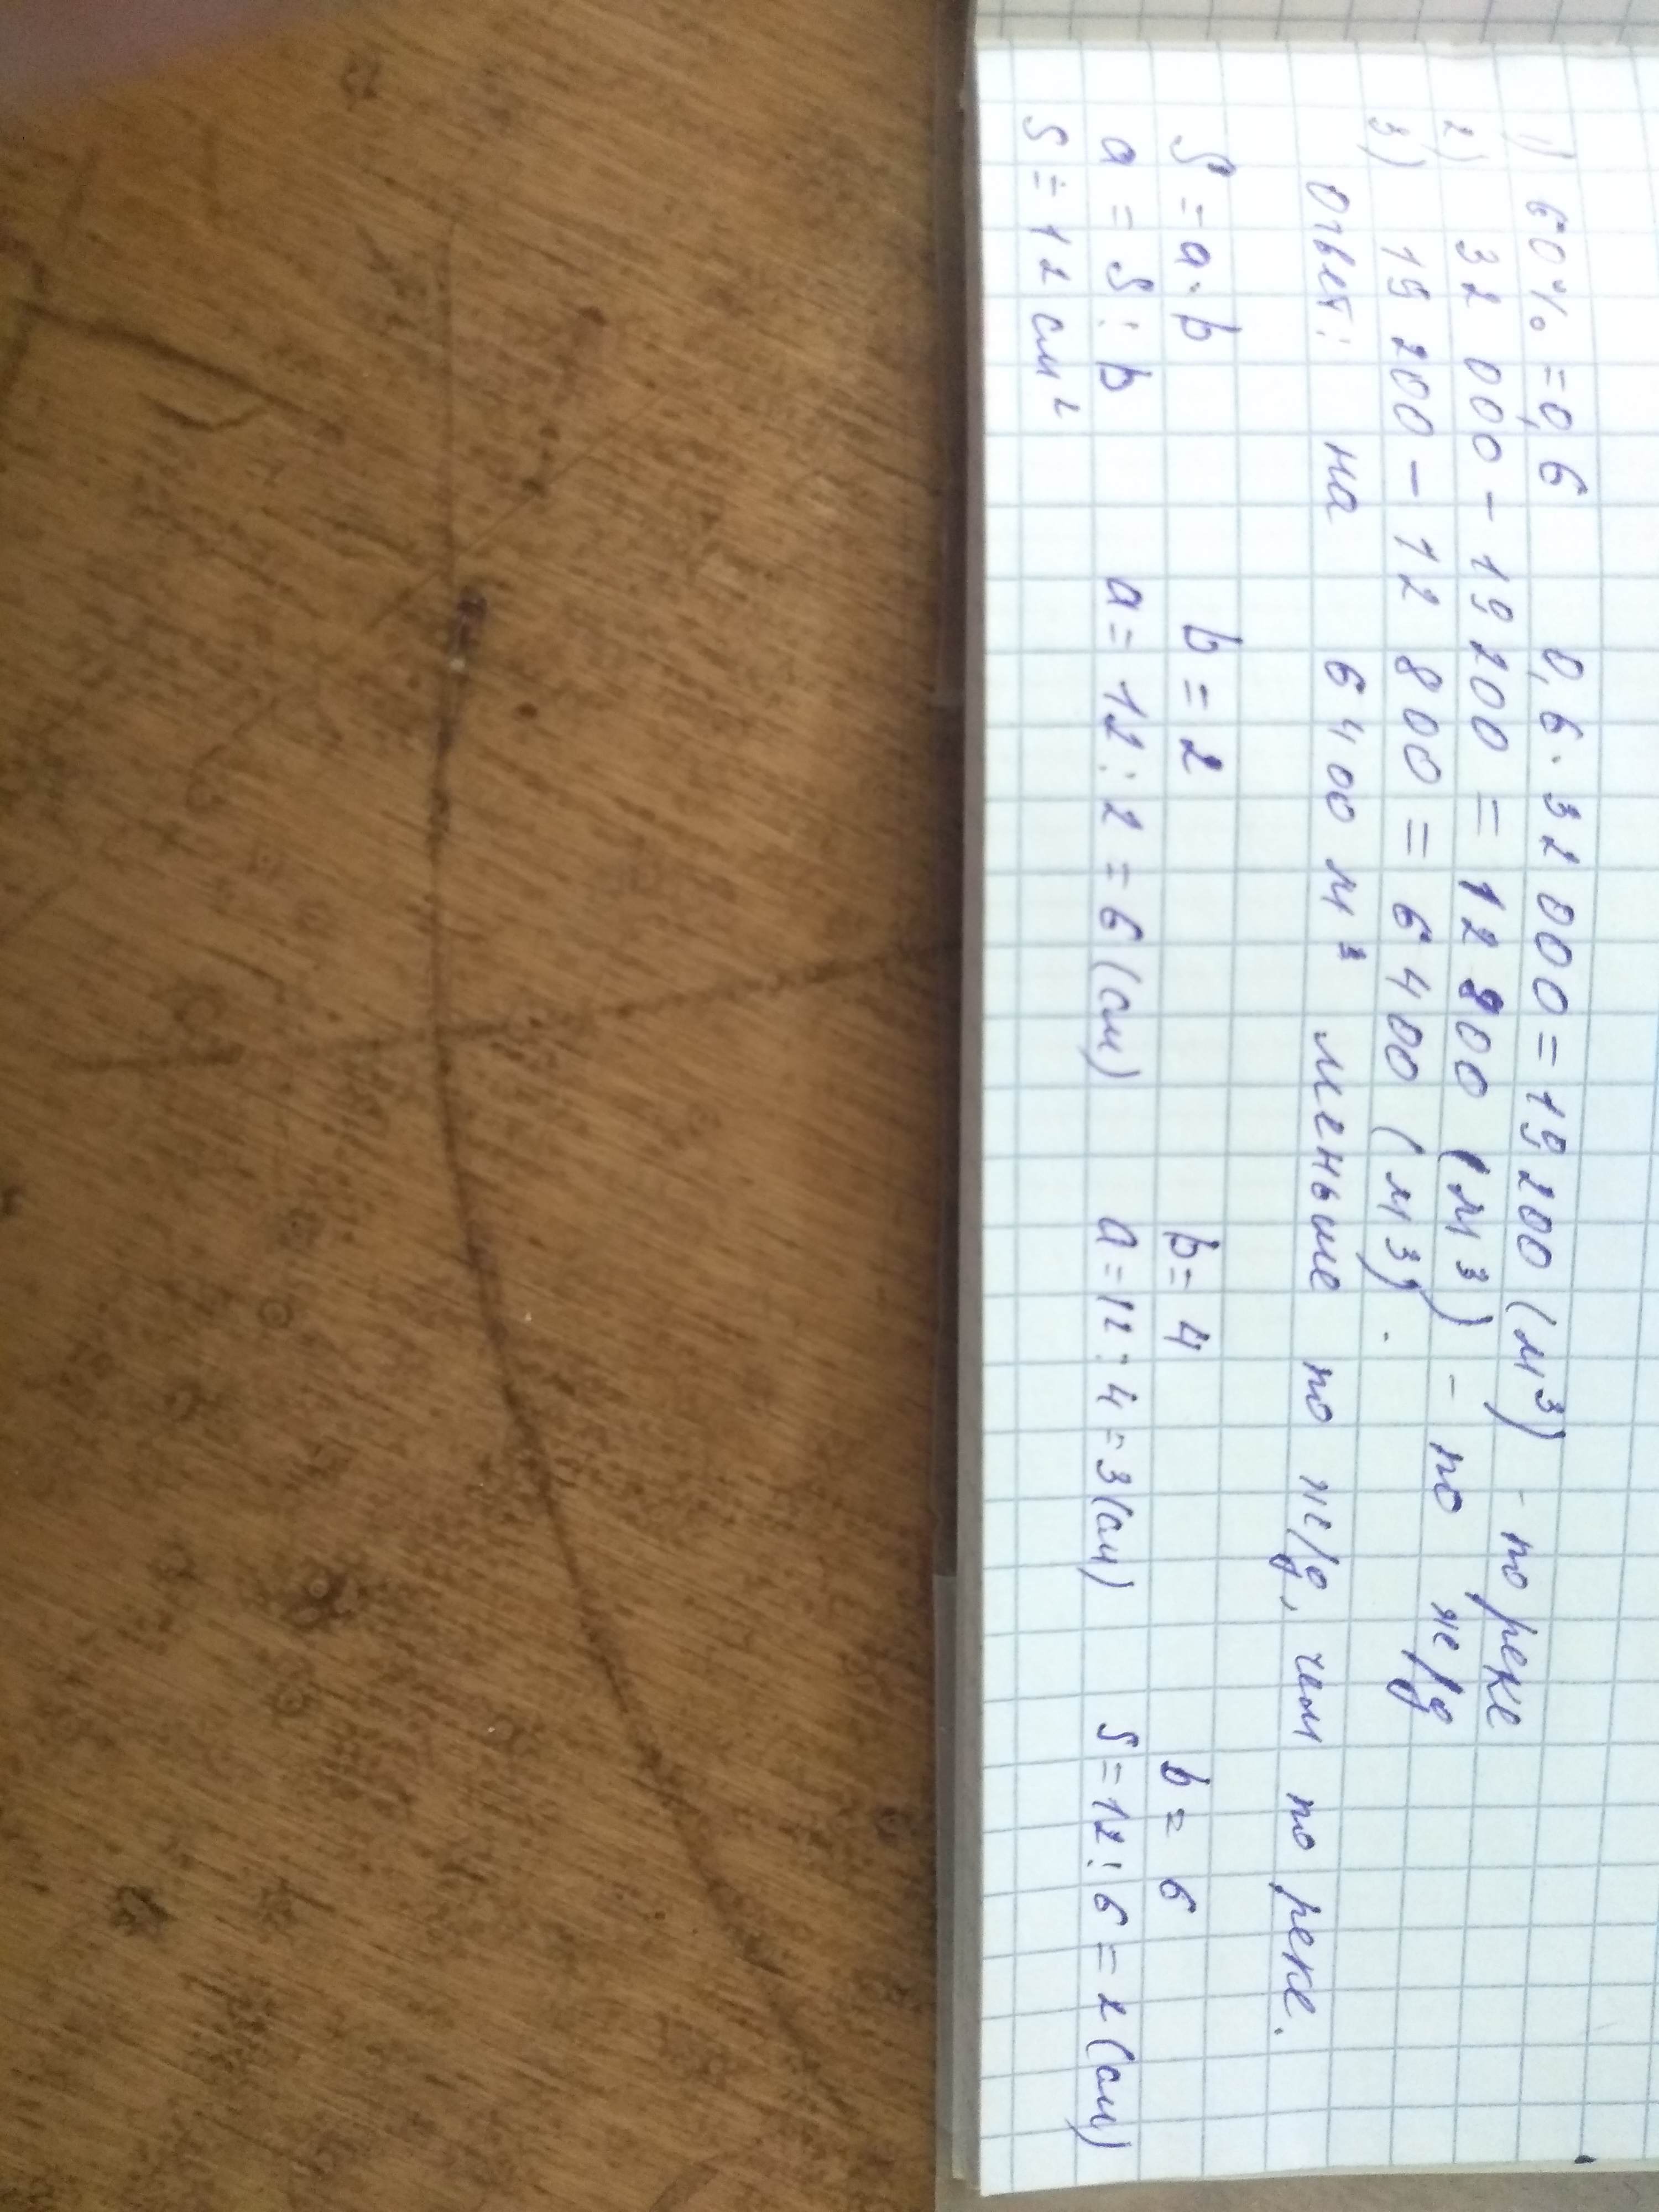 1) 60% = 0,6 0,6 · 32 000 = 19 200 (м³) - по реке
2) 32 000 - 19 200 = 12 800 (м³) - по ж/д
3) 19 200 - 12 800 = 6 400 (м³).
Ответ: на 6 400 м³ меньше по ж/д, чем по реке.
S = a · b b = 2 b = 4 b = 6
a = S : b a = 12 : 2 = 6 (см) a = 12 : 4 = 3 (см) S = 12 : 6 = 2 (см)
S = 12 см²